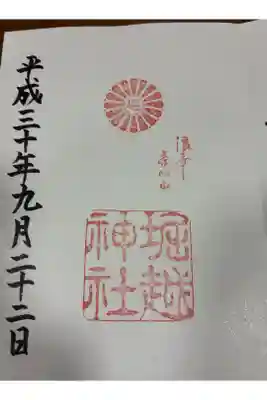 浪華
堀越
神社
平成三十年九月二十二日